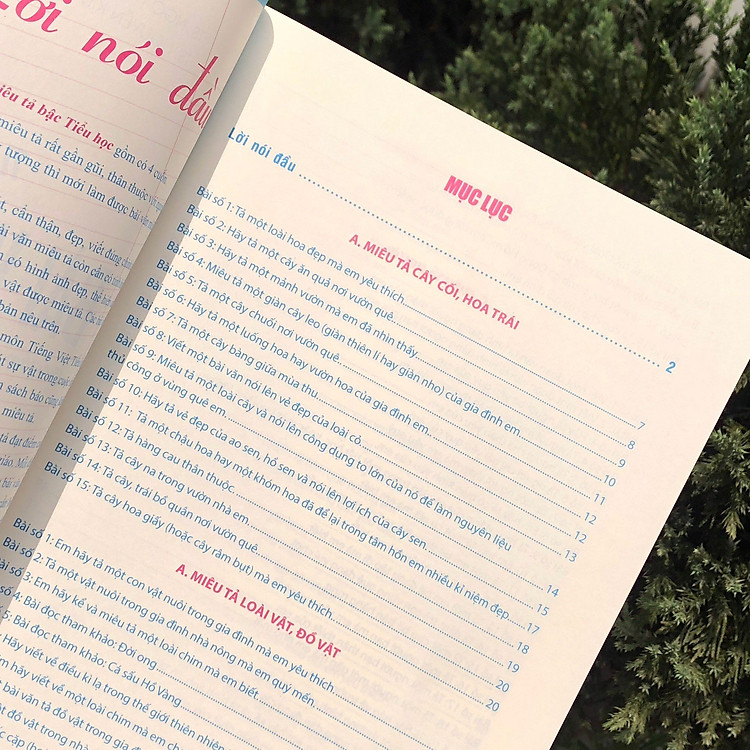 Lời nói đầu
iêu tả bậc Tiểu học gồm có 4 cuốn
miêu tả rất gần gũi, thân thuộc với
tượng thì mới làm được bài văn
cẩn thận, đẹp, viết dung
văn miêu tả còn cần có
có hình ảnh đẹp, thể
vật được miêu tả. Các
bản nêu trên.
môn Tiếng Việt
sự vật trong cuộc
sách báo cũng
miêu tả.
tả đạt điểm
MỤC LỤC
Lời nói đầu ........ 2
A. MIÊU TẢ CÂY CỐI, HOA TRÁI
Bài số 1: Tả một loài hoa đẹp mà em yêu thích ........ 7
Bài số 2: Hãy tả một cây ăn quả nơi vườn quê ........ 8
Bài số 3: Hãy tả một mảnh vườn mà em đã nhìn thấy ........ 9
Bài số 4: Miêu tả một giàn cây leo (giàn thiên lí hay giàn nho) của gia đình em ........ 10
Bài số 5: Tả một cây chuối nơi vườn quê ........ 11
Bài số 6: Hãy tả một luống hoa hay vườn hoa của gia đình em ........ 12
Bài số 7: Tả một cây bàng giữa mùa thu ........ 12
Bài số 8: Viết một bài văn nói lên vẻ đẹp của loài cỏ ........ 13
Bài số 9: Miêu tả một loài cây và nói lên công dụng to lớn của nó để làm nguyên liệu
thủ công ở vùng quê em ........ 14
Bài số 10: Hãy tả vẻ đẹp của ao sen, hồ sen và nói lên lợi ích của cây sen ........ 15
Bài số 11: Tả một chậu hoa hay một khóm hoa đã để lại trong tâm hồn em nhiều kỉ niệm đẹp ........ 17
Bài số 12: Tả hàng cau thân thuộc ........ 18
Bài số 13: Tả cây na trong vườn nhà em ........ 19
Bài số 14: Tả cây, trái bồ quân nơi vườn quê ........ 20
Bài số 15: Tả cây hoa giấy (hoặc cây râm bụt) mà em yêu thích ........ 20
A. MIÊU TẢ LOÀI VẬT, ĐỒ VẬT
Bài số 1: Em hãy tả một con vật nuôi trong gia đình mà em yêu thích
số 2: Tả một vật nuôi trong gia đình nhà nông mà em quý mến
số 3: Em hãy kể và miêu tả một loài chim mà em biết
4: Bài đọc tham khảo: Đời ong
Bài đọc tham khảo: Cá sấu Hồ Vàng
Hãy viết về điều kì lạ trong thế giới thiên nhiên
hãy viết về một loài chim mà em
bài văn tả đồ vật trong gia đình
đồ vật trong nhà
cặp